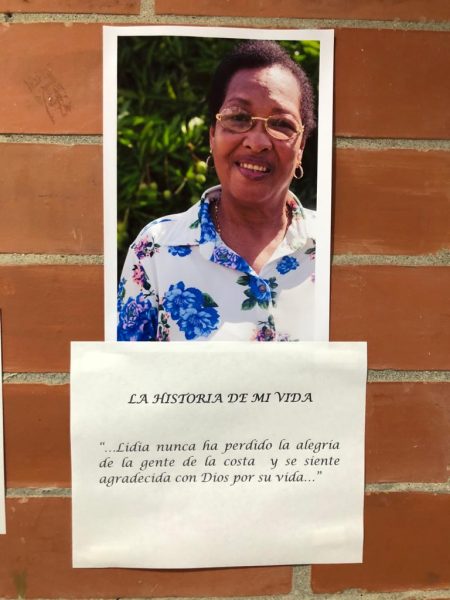 LA HISTORIA DE MI VIDA
“...Lidia nunca ha perdido la alegría
de la gente de la costa y se siente
agradecida con Dios por su vida...”